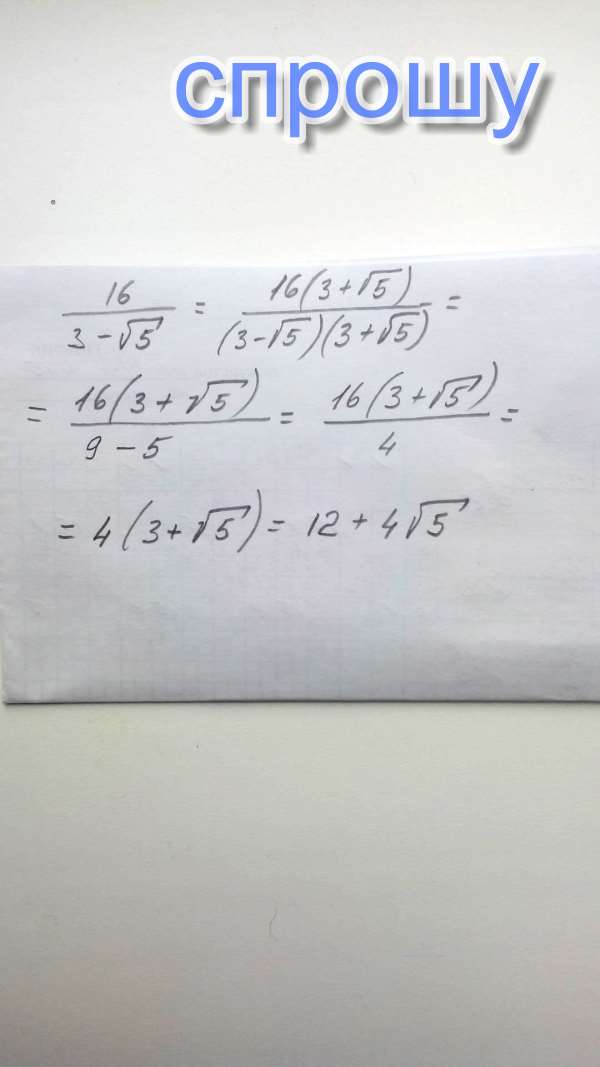 спрошу
16/(3-√5) = 16(3+√5)/((3-√5)(3+√5)) =
= 16(3+√5)/(9-5) = 16(3+√5)/4 =
= 4(3+√5) = 12 + 4√5